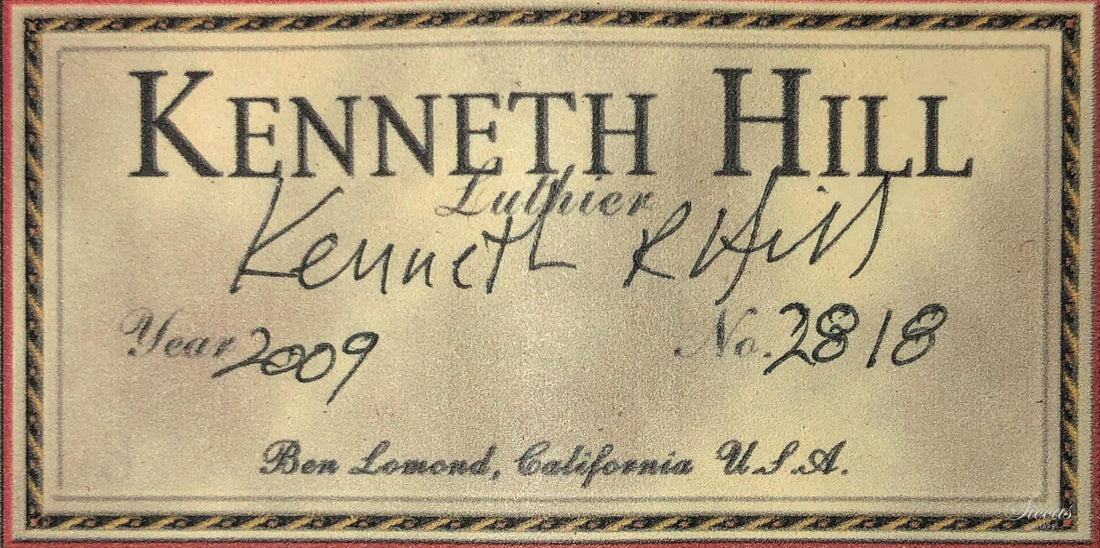 KENNETH HILL
Luthier
Kenneth R Hill
Year 2009 No. 2818
Ben Lomond, California U.S.A.
Siccas